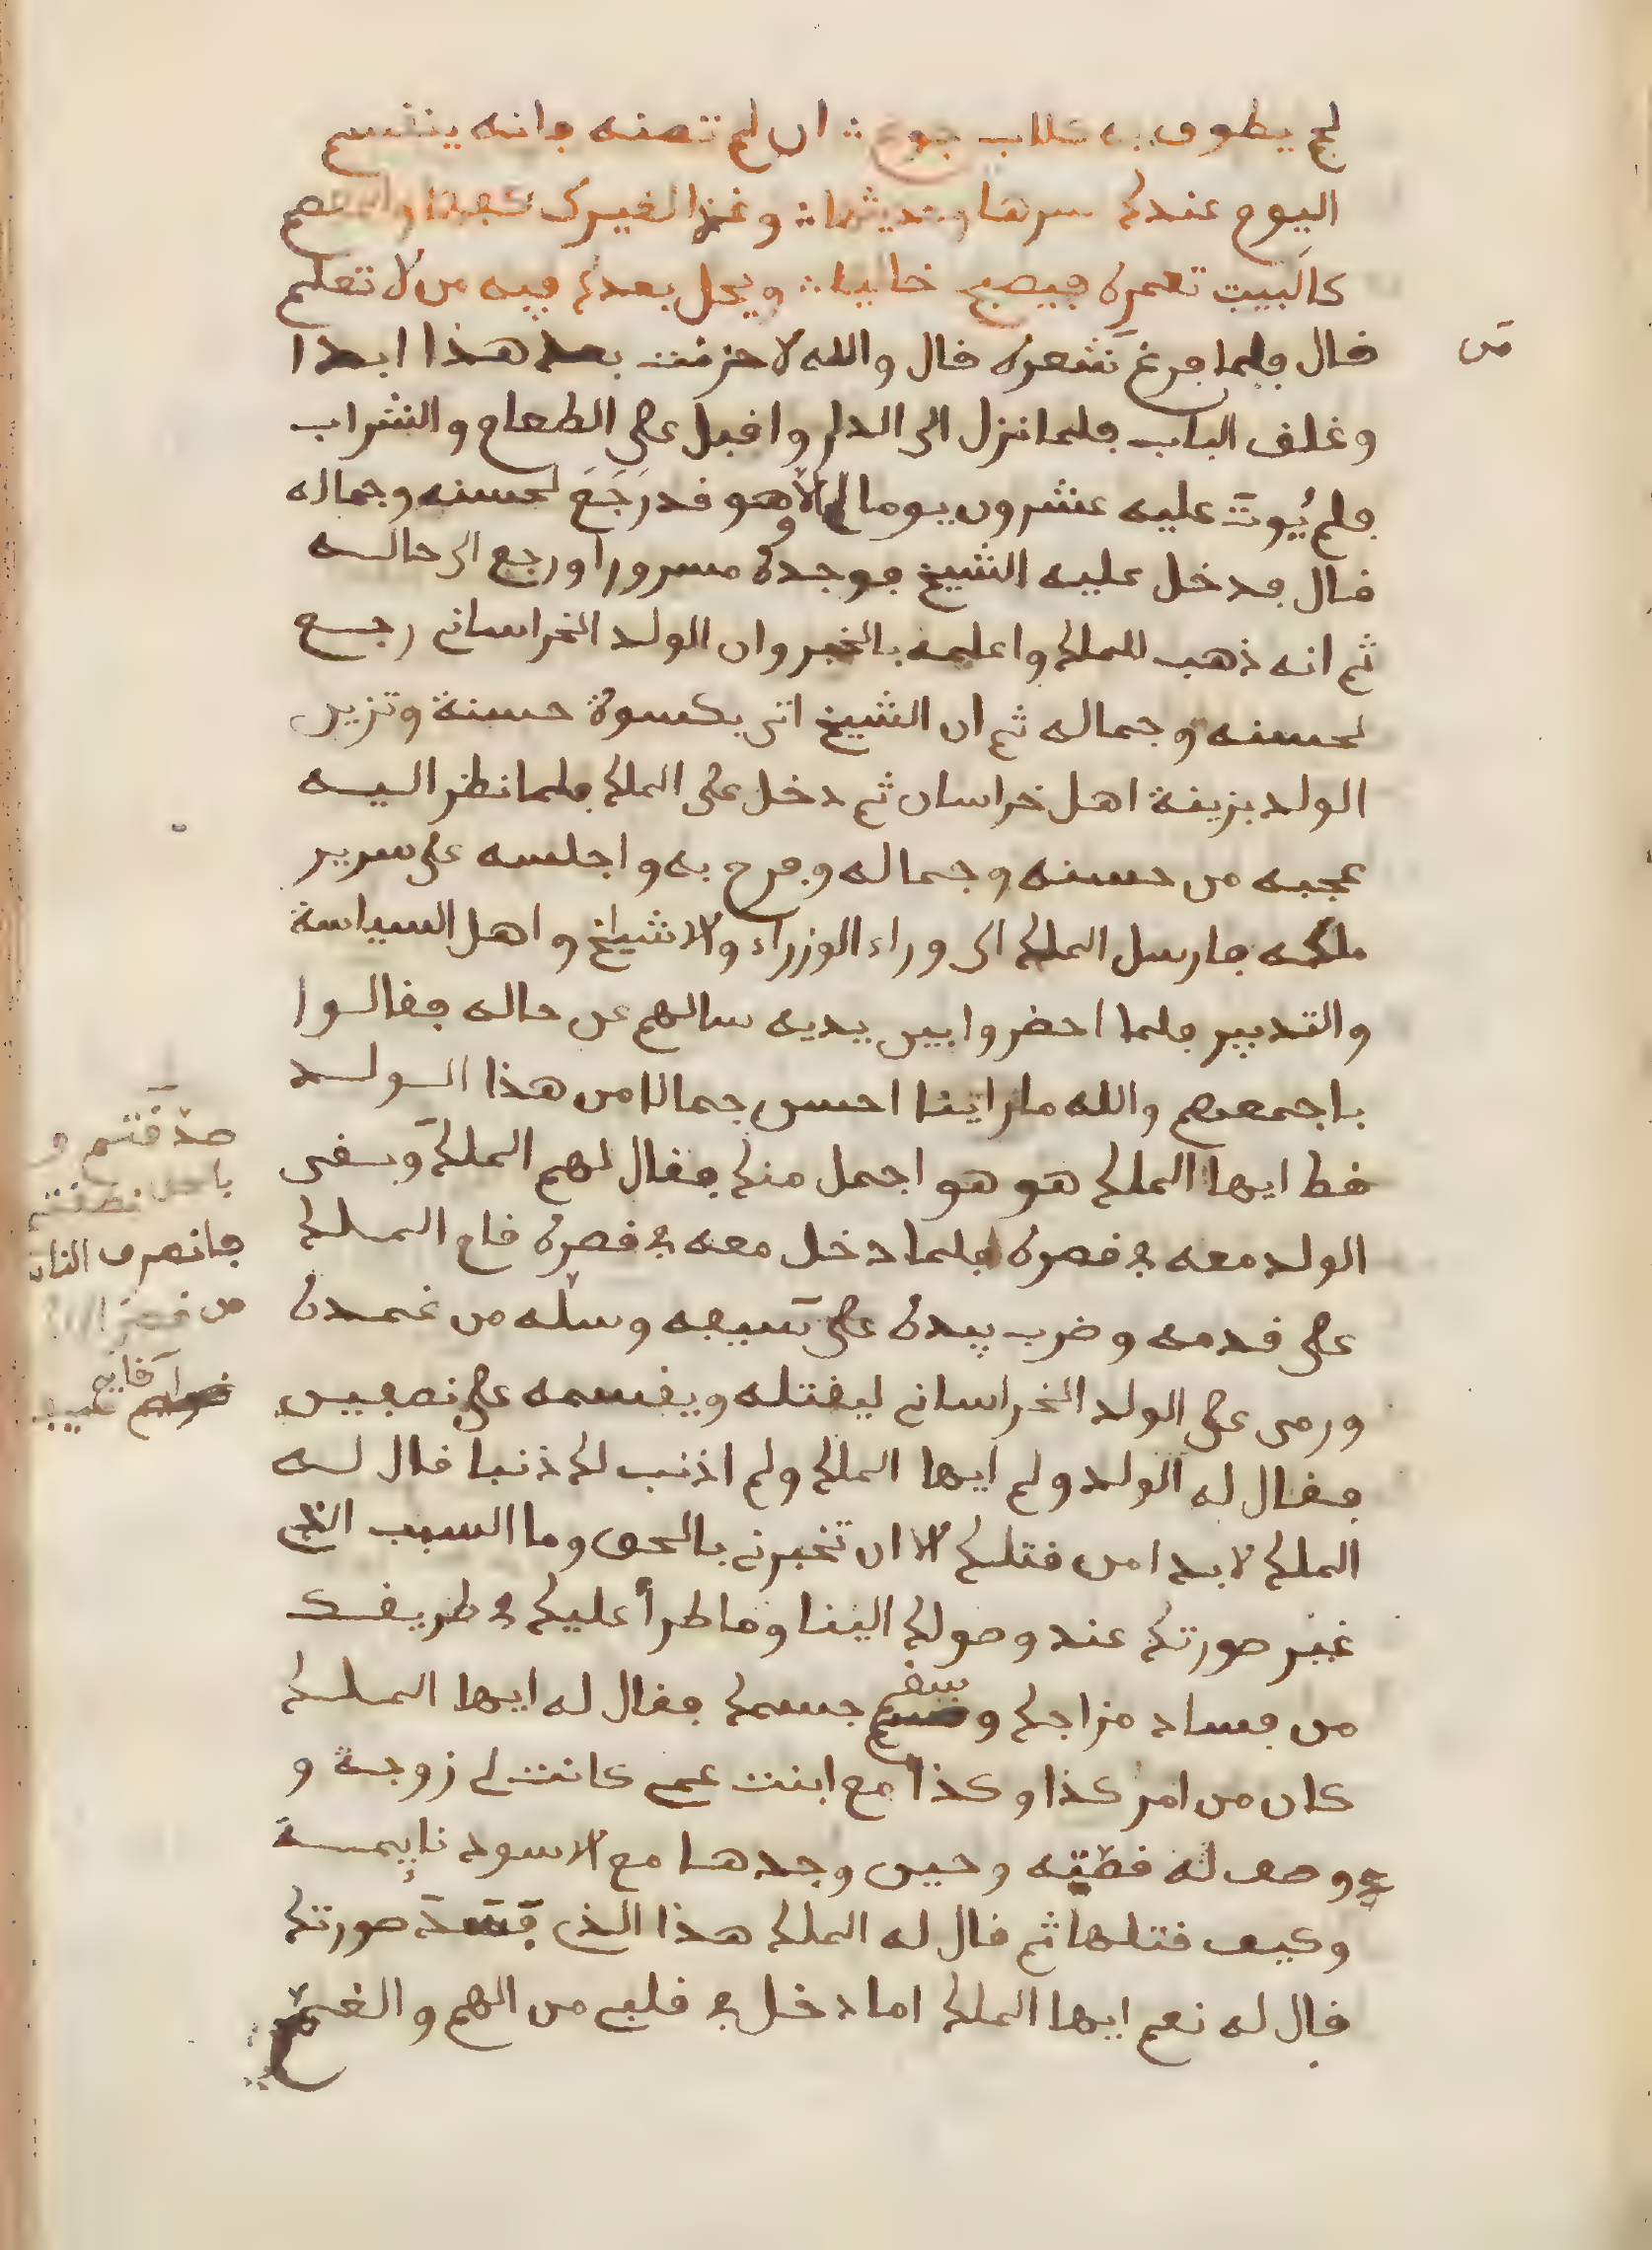 لحم يطوف به كلاب جوع ∴ ان لم تصنه فانه ينقسم
اليوم عندك سرها وحديثها ∴ وغدا لغيرك
كالبيت تعمره فيصبح خاليا ∴ ويحل بعدك فيه من لا تعلم
قال فلما فرغ شعره قال والله لا حزنت بعد هذا ابدا
من
وغلق الباب فلما نزل الى الدار واقبل على الطعام والشراب
فلم يُوت عليه عشرون يوما الا وهو قد رَجَعَ لحسنه وجماله
قال فدخل عليه الشيخ فوجده مسرورا ورجع الى حاله
ثم انه ذهب للملك واعلمه بالخبر وان الولد الخراساني رجع
لحسنه وجماله ثم ان الشيخ اتى بكسوة حسنة وتزين
الولد بزينة اهل خراسان ثم دخل على الملك فلما نظر اليه
عجبه من حسنه وجماله وفرح به واجلسه على سرير
ملكه فارسل الملك الى وراء الوزراء والاشياخ واهل السياسة
والتدبير فلما احضروا بين يديه سالهم عن حاله فقالوا
باجمعهم والله ما راينا احسن جمالا من هذا الولد
قط ايها الملك هو هو اجمل منك فقال لهم الملك وبقى
صدقتم و
بالحق نطقتم
فانصرف الناس
من
الولد معه في قصره فلما دخل معه في قصره قام الملك
على قدمه وضرب بيده على سيفه وسله من غمده
ورمى على الولد الخراساني ليقتله ويقسمه على نصفين
فقال له الولد ولم ايها الملك ولم اذنب لك ذنبا قال له
الملك لا بدا من قتلك الا ان تخبرني بالحق وما السبب الذي
غير صورتك عند وصولك الينا وما طرأ عليك في طريقك
من فساد مزاجك وسقم جسمك فقال له ايها الملك
كان من امر كذا وكذا مع ابنت عمي كانت لي زوجة و
ووصف له قصته وحين وجدها مع الاسود نايمة
وكيف قتلها ثم قال له الملك هذا الذي فسد صورتك
قال له نعم ايها الملك اما دخل في قلبي من الهم والغم